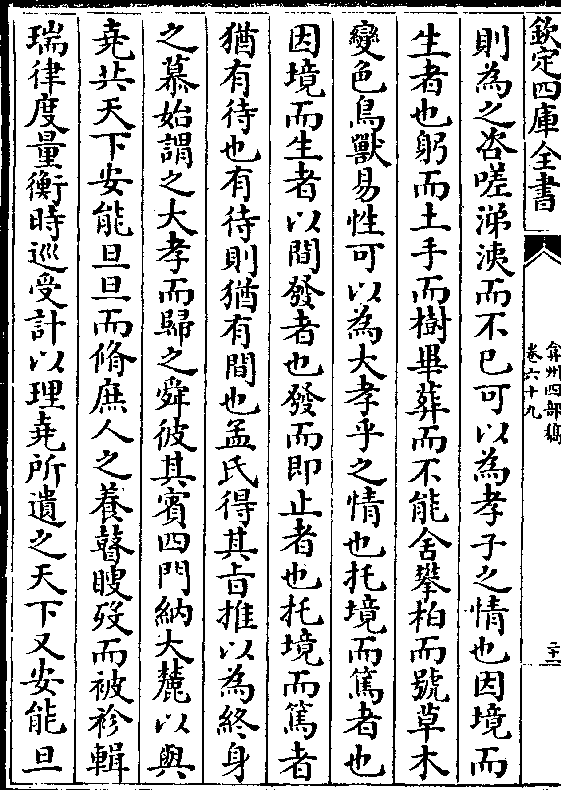 欽定四庫全書
弇州四部稿
卷六十九
二十一
則為之咨嗟涕洟而不已可以為孝子之情也因境而
生者也躬而土手而樹畢葬而不能舍攀柏而號草木
變色鳥獸易性可以為大孝乎之情也托境而篤者也
因境而生者以間發者也發而即止者也托境而篤者
猶有待也有待則猶有間也孟氏得其旨推以為終身
之慕始謂之大孝而歸之舜彼其賓四門納大麓以與
堯共天下安能旦旦而脩庶人之養瞽瞍歿而被袗輯
瑞律度量衡時巡受計以理堯所遺之天下又安能旦